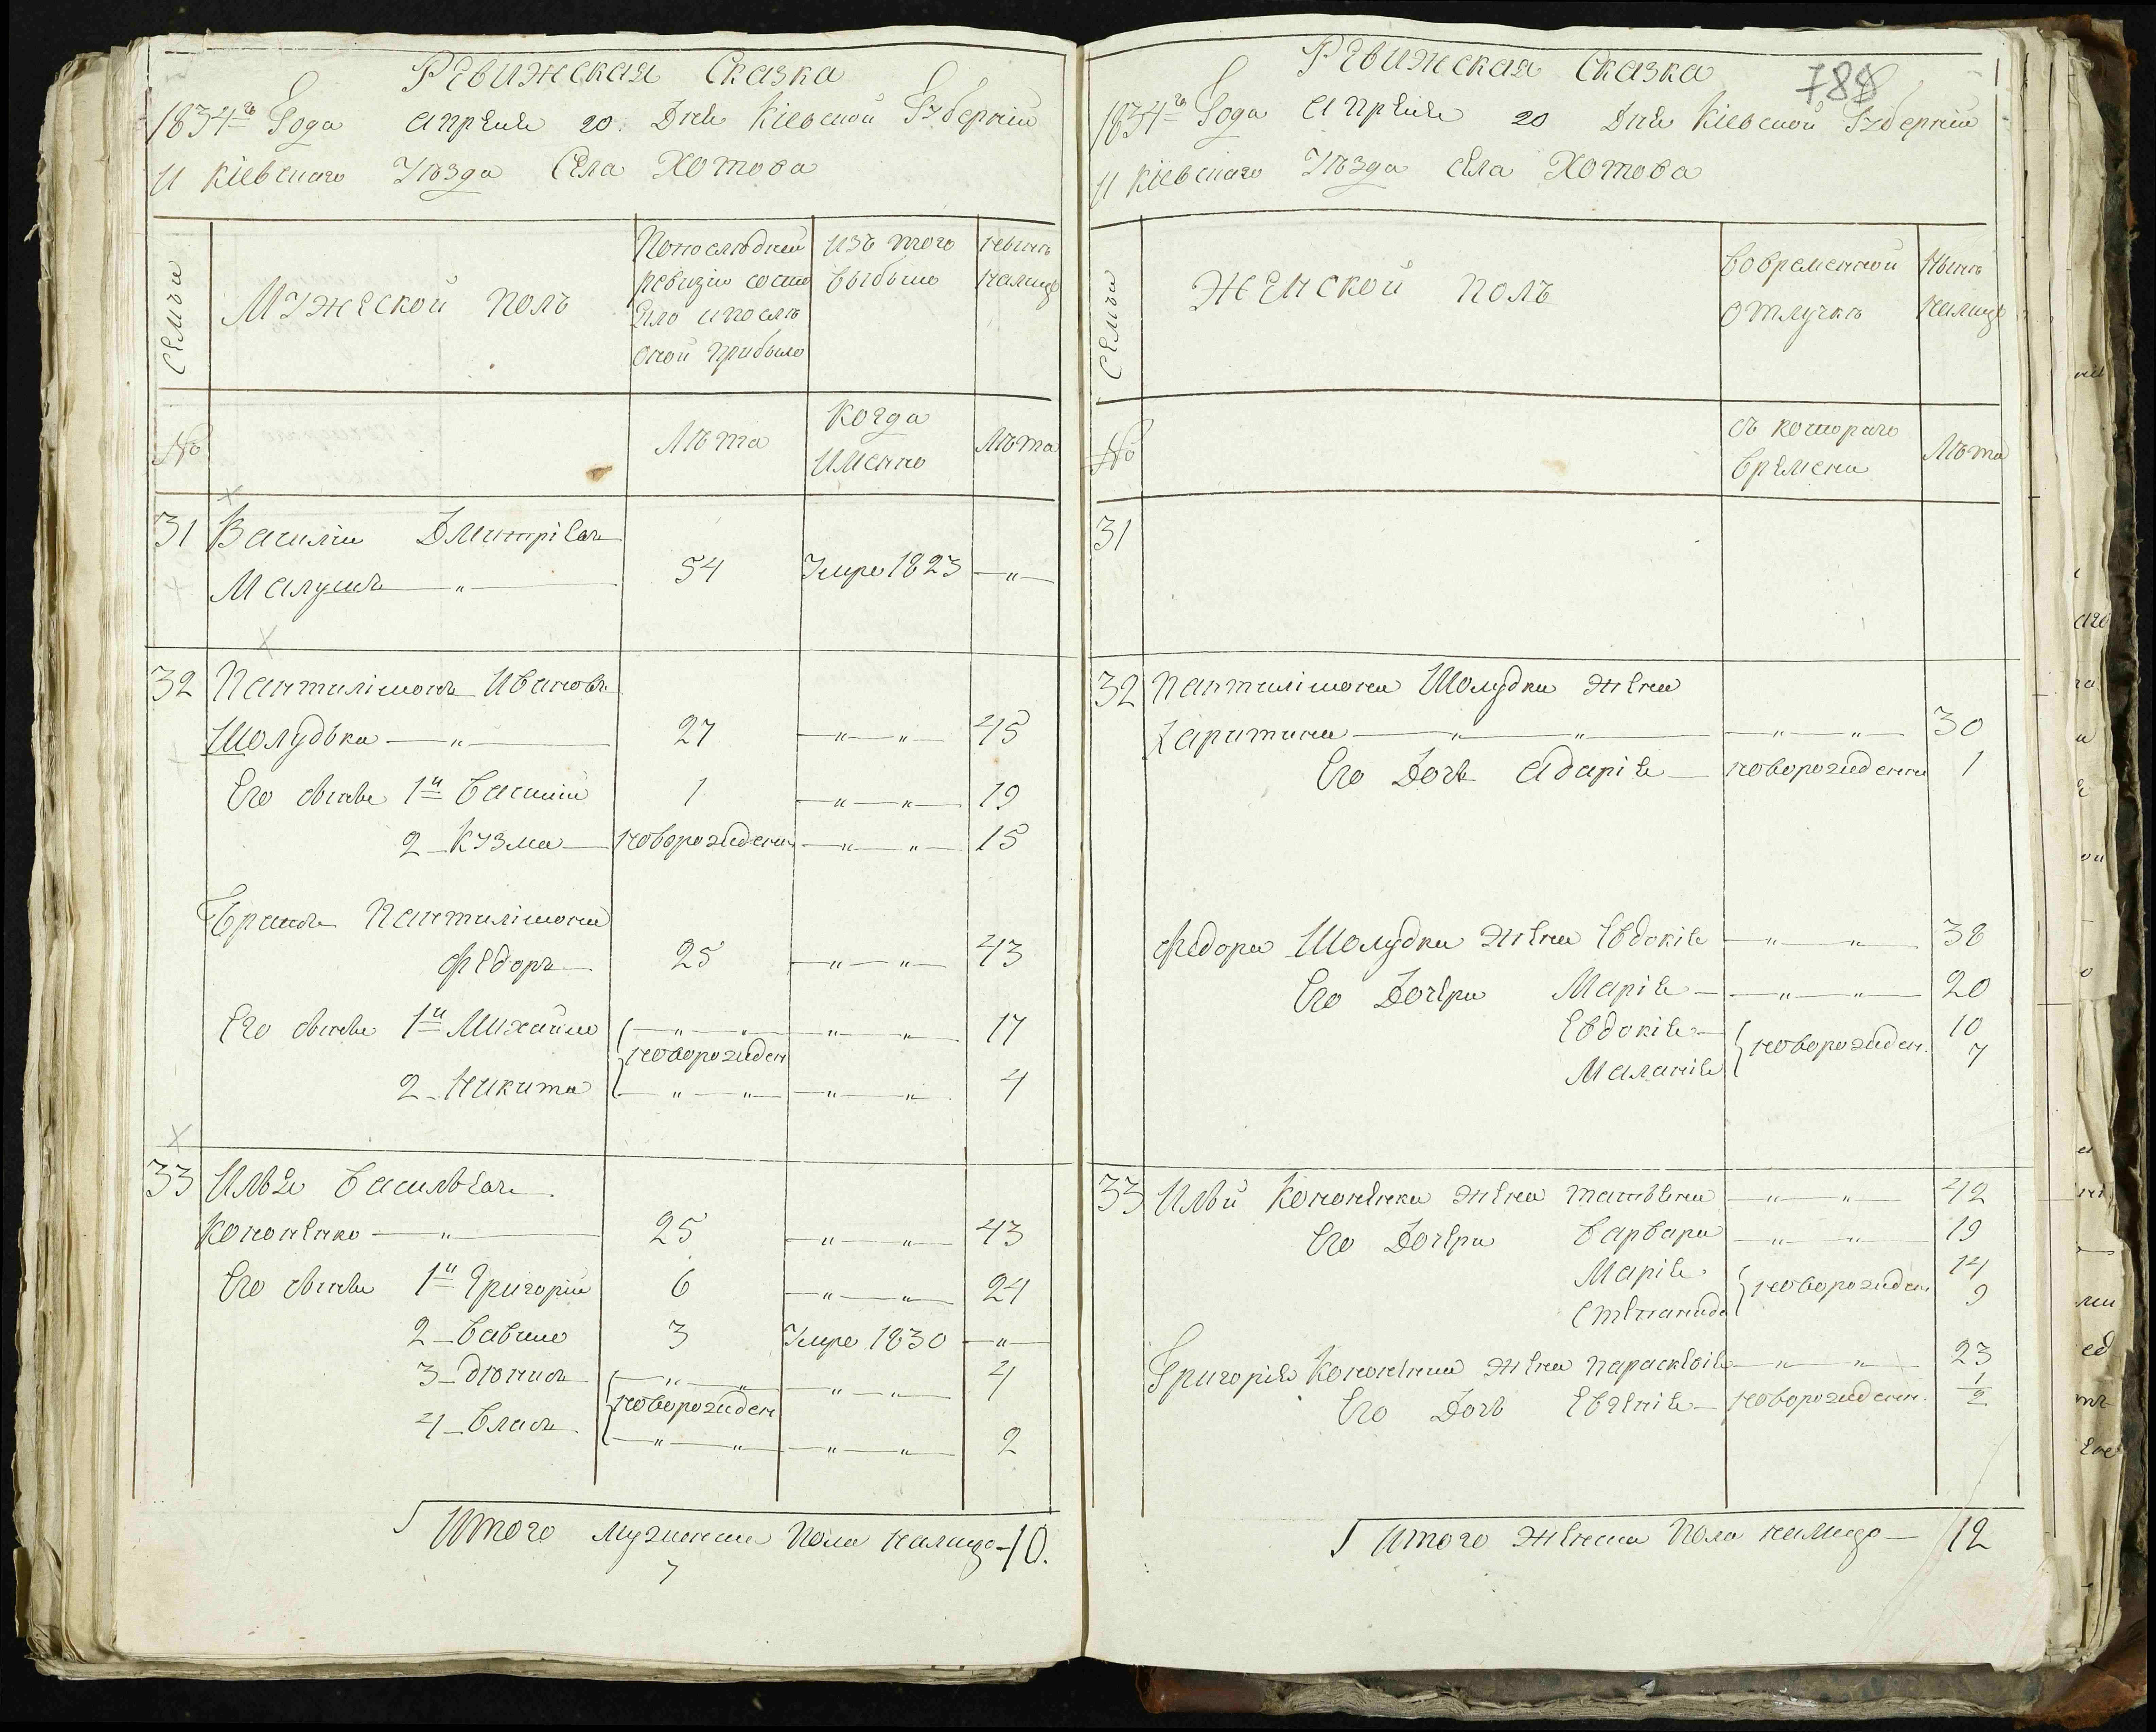 Ревижская Сказка
1834го Года Апреля 20. Дня Кіевской Губерніи
и Кіевскаго Уѣзда Села Хотова
Семьи
Мужеской полъ
Попослѣдней
ревизіи состо
яло и послѣ
оной прибыло
изъ того
выбыло
Нынѣ
налицо
№
Лѣта
Когда
Именно
Лѣта
31 Василій Дмитріевъ
Малушъ — " — 54 Умре 1823 — " —
32 Пантилімонъ Ивановъ
Шолудько — " — 27 — " — " — 45
Его сыновья 1й Василій 1 — " — " — 19
2 — Кузма — новорожденн — " — " — 15
Братъ Пантилімона
Федоръ 25 — " — " — 43
Его сыновья 1й Михайло — " — " — — " — " — 17
новорожден
2 — Никита — " — " — — " — " — 4
33 Илья Васильевъ
Кононенко — " — 25 — " — " — 43
Его сыновья 1й Григорій 6 — " — " — 24
2 — Вавило 3 Умре 1830 — " —
3 — Діонисъ — " — " — — " — " — 4
новорожден
4 — Власъ — " — " — — " — " — 2
Итого мужеска пола налицо — 10.
7
Ревижская Сказка
788
1834го Года Апреля 20 Дня Кіевской Губерніи
и Кіевскаго Уѣзда Села Хотова
Семьи
Женской полъ
Вовременной
отлучкѣ
Нынѣ
налицо
№
съ котораго
времени
Лѣта
31
32 Пантилімона Шолудка жена
Харитина — " — " — — " — " — 30
Его Дочь Адарія — новорожденна 1
Федора Шолудка жена Евдокія — " — " — 38
Его Дочери Марія — — " — " — 20
Евдокія — 10
новорожден.
Маланія 7
33 Ильи Кононенка жена Татьяна — " — " — 42
Его Дочери Варвара — " — " — 19
Марія 14
новорожден.
Степанида 9
Григорія Кононенка жена Параскевія — " — " — 23
Его Дочь Евгенія — новорожденн. 1/2
Итого женска пола налицо — 12